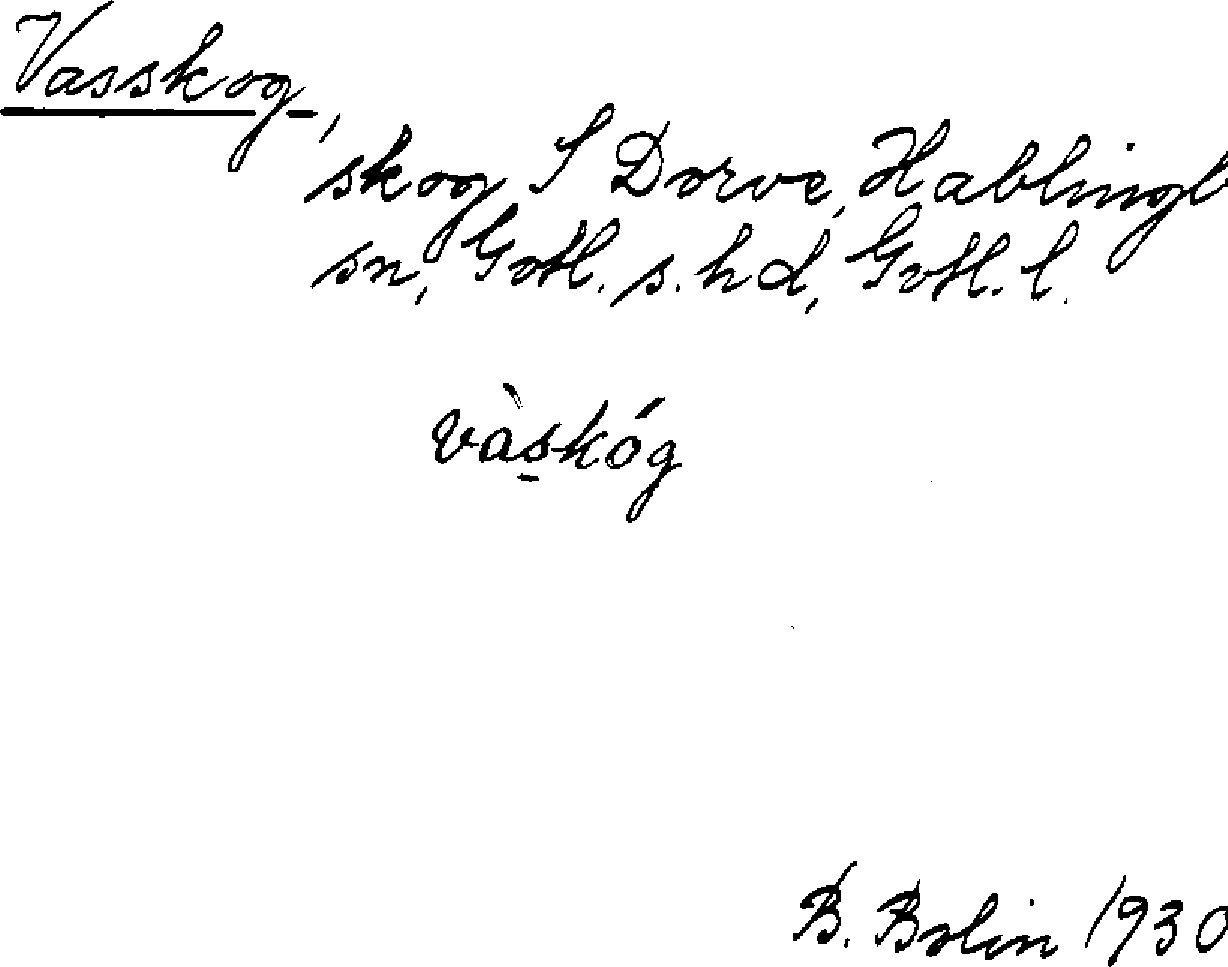 Vasskog,
skog S Dorve, Hablingb
sn, Gotl. s. hd, Gotl. l.
vàs̱kóg
B. Bolin 1930